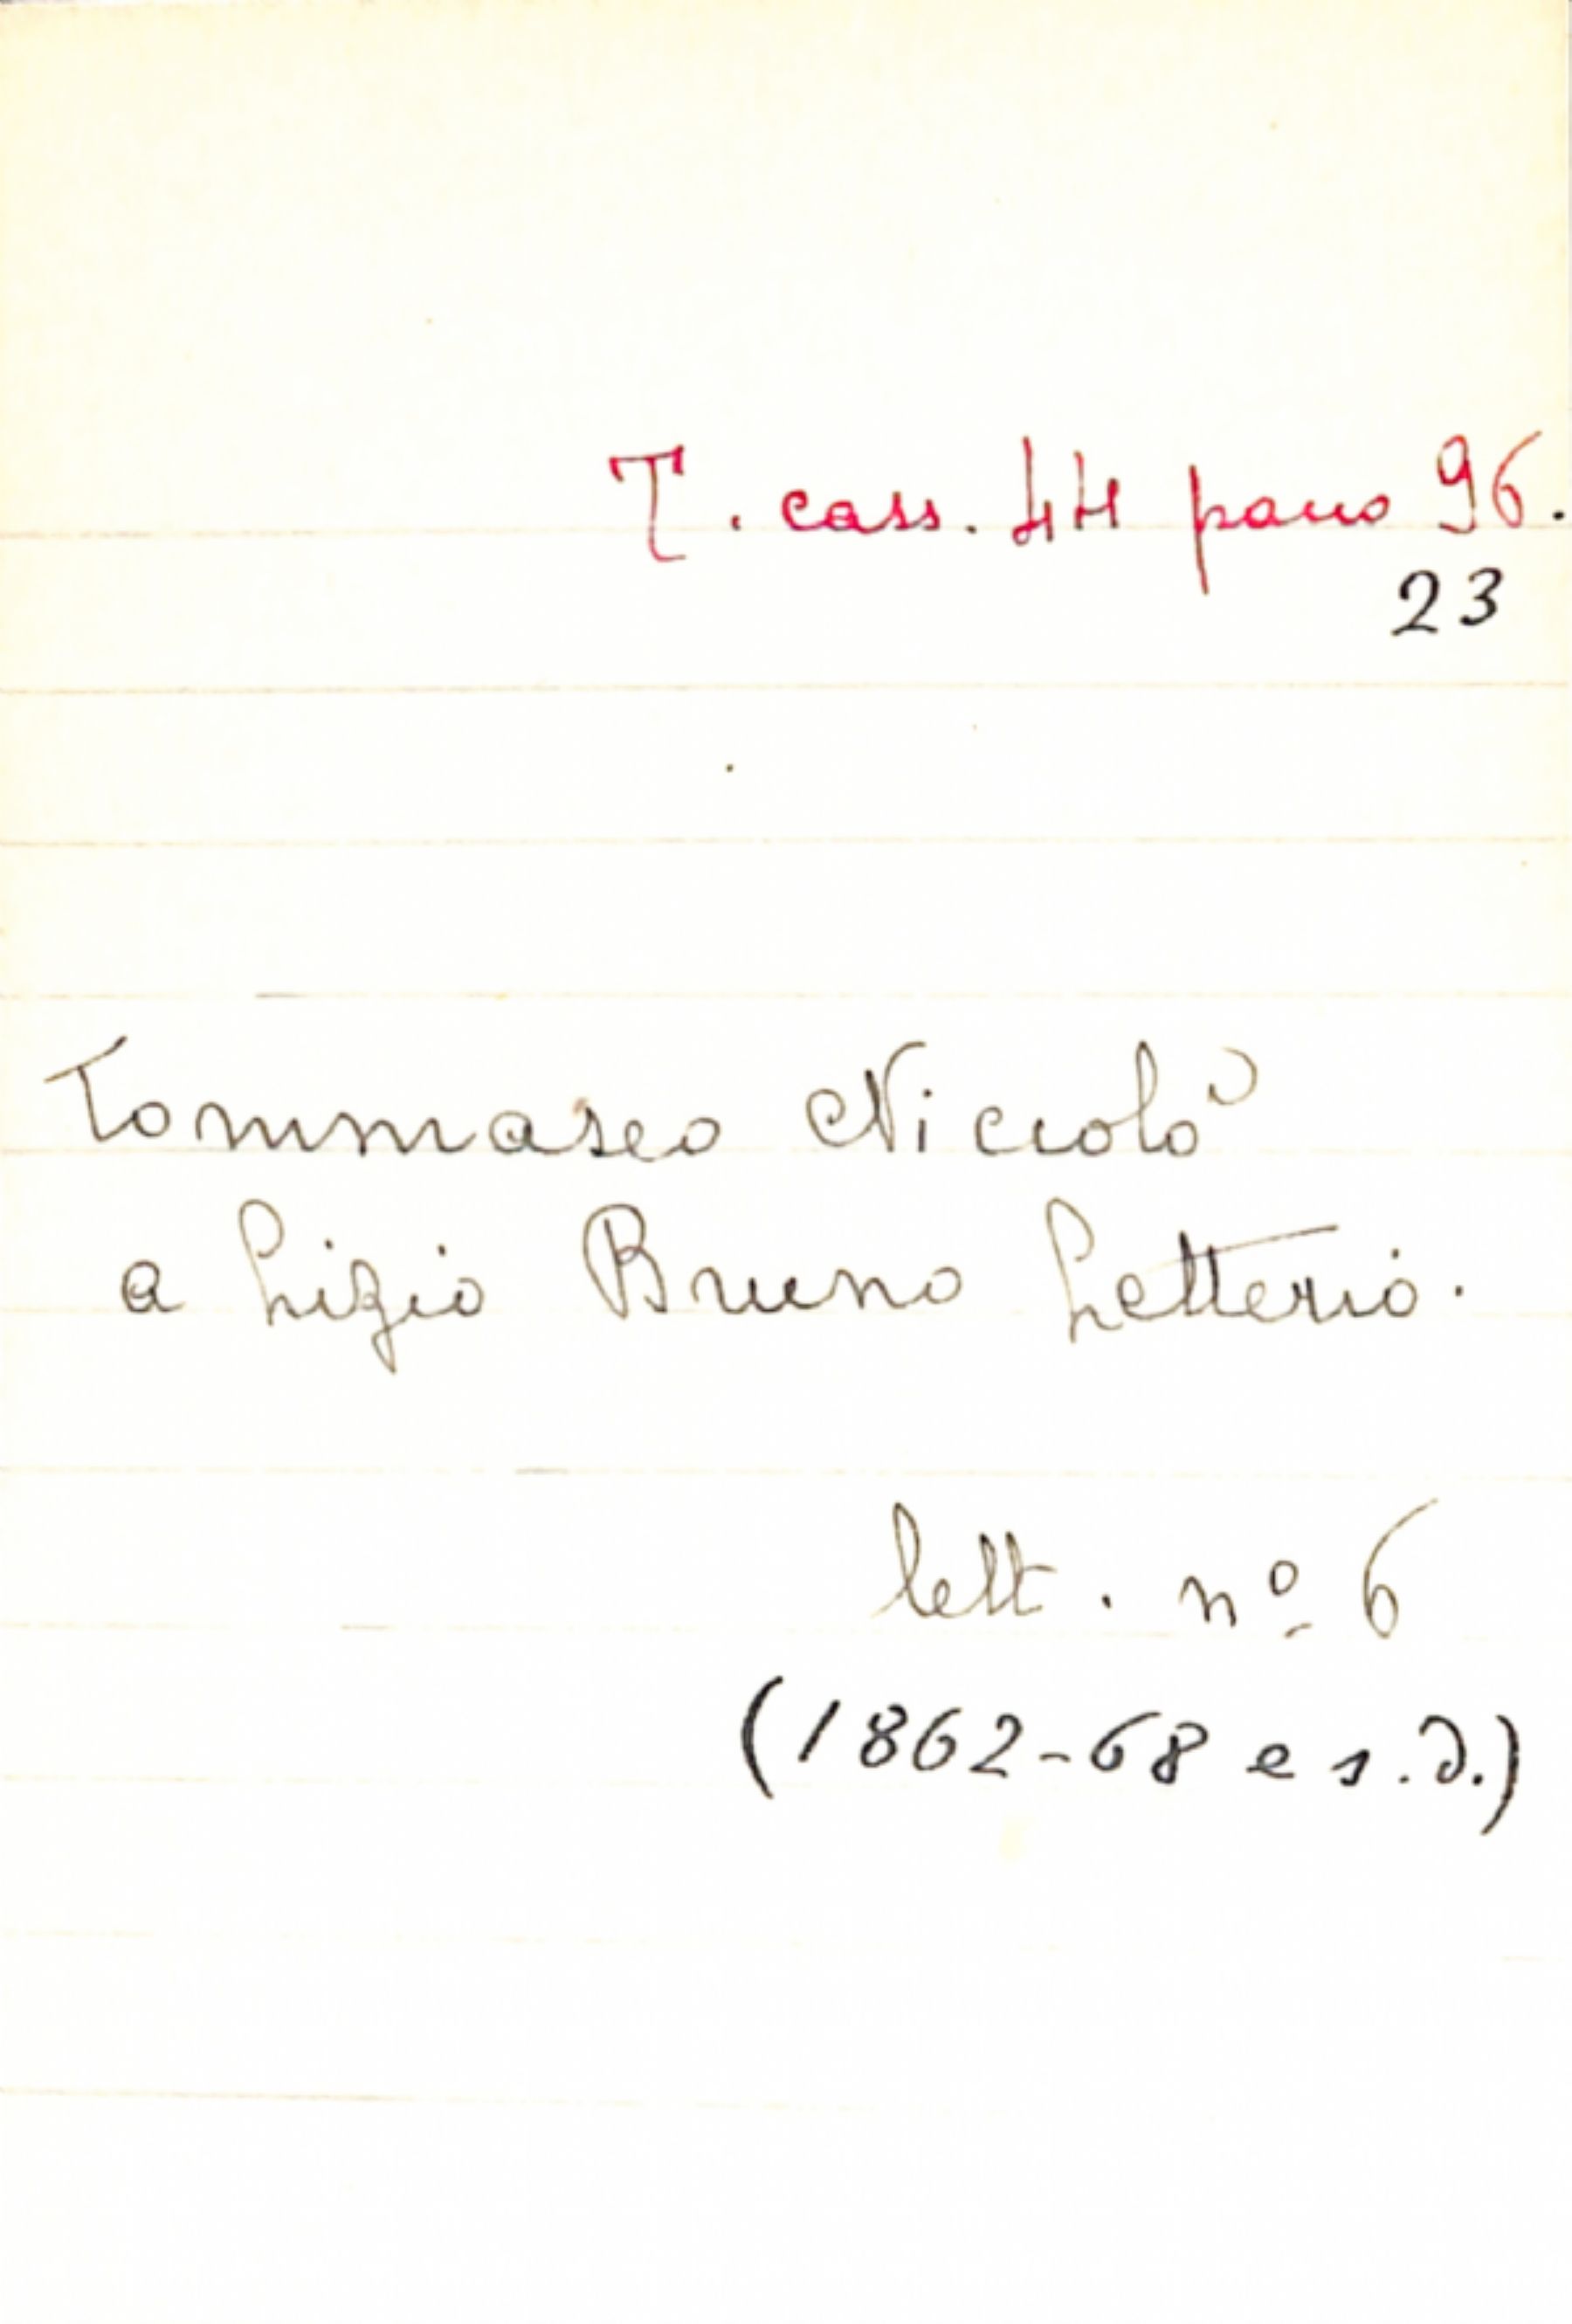 T. cass. 44 pano 96.
23
Tommaseo Niccolò
a Lizio Bruno Letterio.
lett. nº 6
(1862-68 e s.d.)